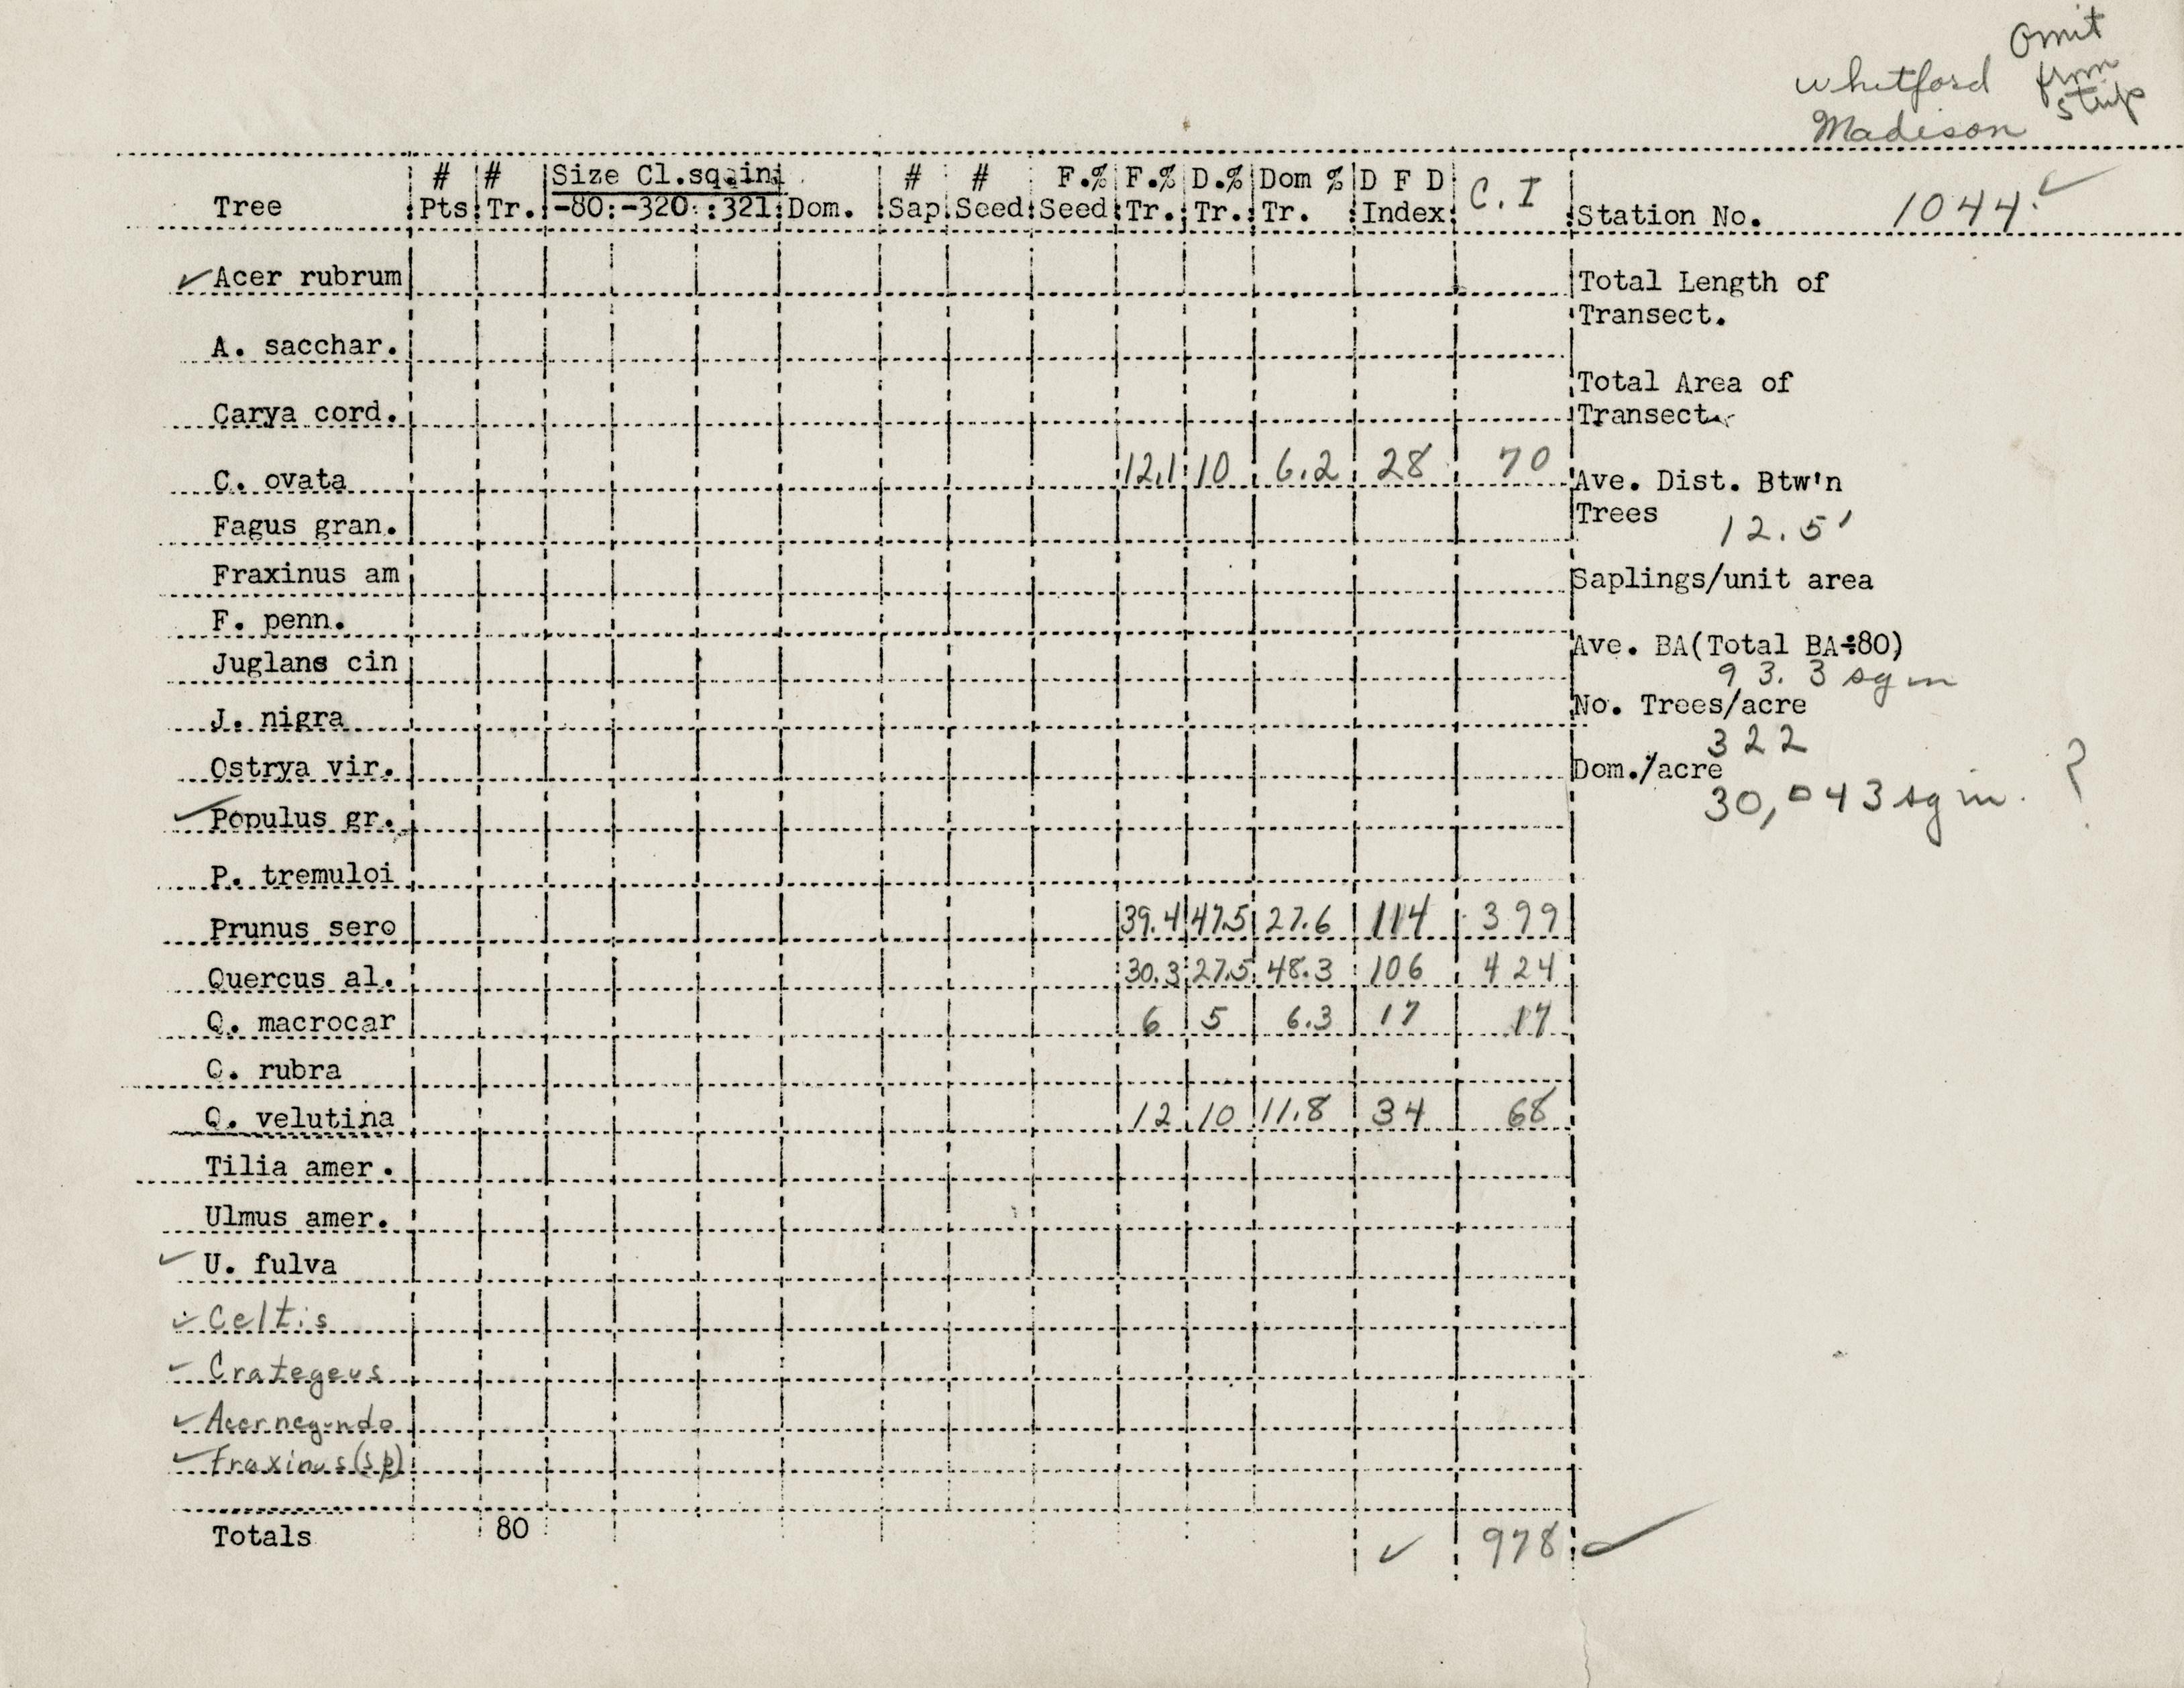 Omit
whitford from
Madison strip
# # Size Cl.sq.in # # F.% F.% D.% Dom % D F D C.I
Tree Pts Tr. -80:-320::321: Dom. Sap Seed Seed Tr. Tr. Tr. Index Station No. 1044
✓ Acer rubrum
Total Length of
Transect.
A. sacchar.
Total Area of
Transect.
Carya cord.
C. ovata 12.1 10 6.2 28 70
Ave. Dist. Btw'n
Trees 12.5'
Fagus gran.
Fraxinus am
Saplings/unit area
F. penn.
Ave. BA(Total BA÷80)
93.3 sq in
Juglans cin
No. Trees/acre
322
J. nigra
Dom./acre
30,043 sq in. ?
Ostrya vir.
✓ Populus gr.
P. tremuloi
Prunus sero 39.4 47.5 27.6 114 399
Quercus al. 30.3 27.5 48.3 106 424
Q. macrocar 6 5 6.3 17 17
Q. rubra
Q. velutina 12 10 11.8 34 68
Tilia amer.
Ulmus amer.
✓ U. fulva
✓ Celtis
✓ Crategeus
✓ Acer negundo
✓ Fraxinus (sp)
Totals 80 ✓ 978 ✓